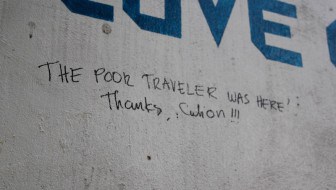 LOVE
THE POOR TRAVELER WAS HERE!
Thanks, Culion !!!